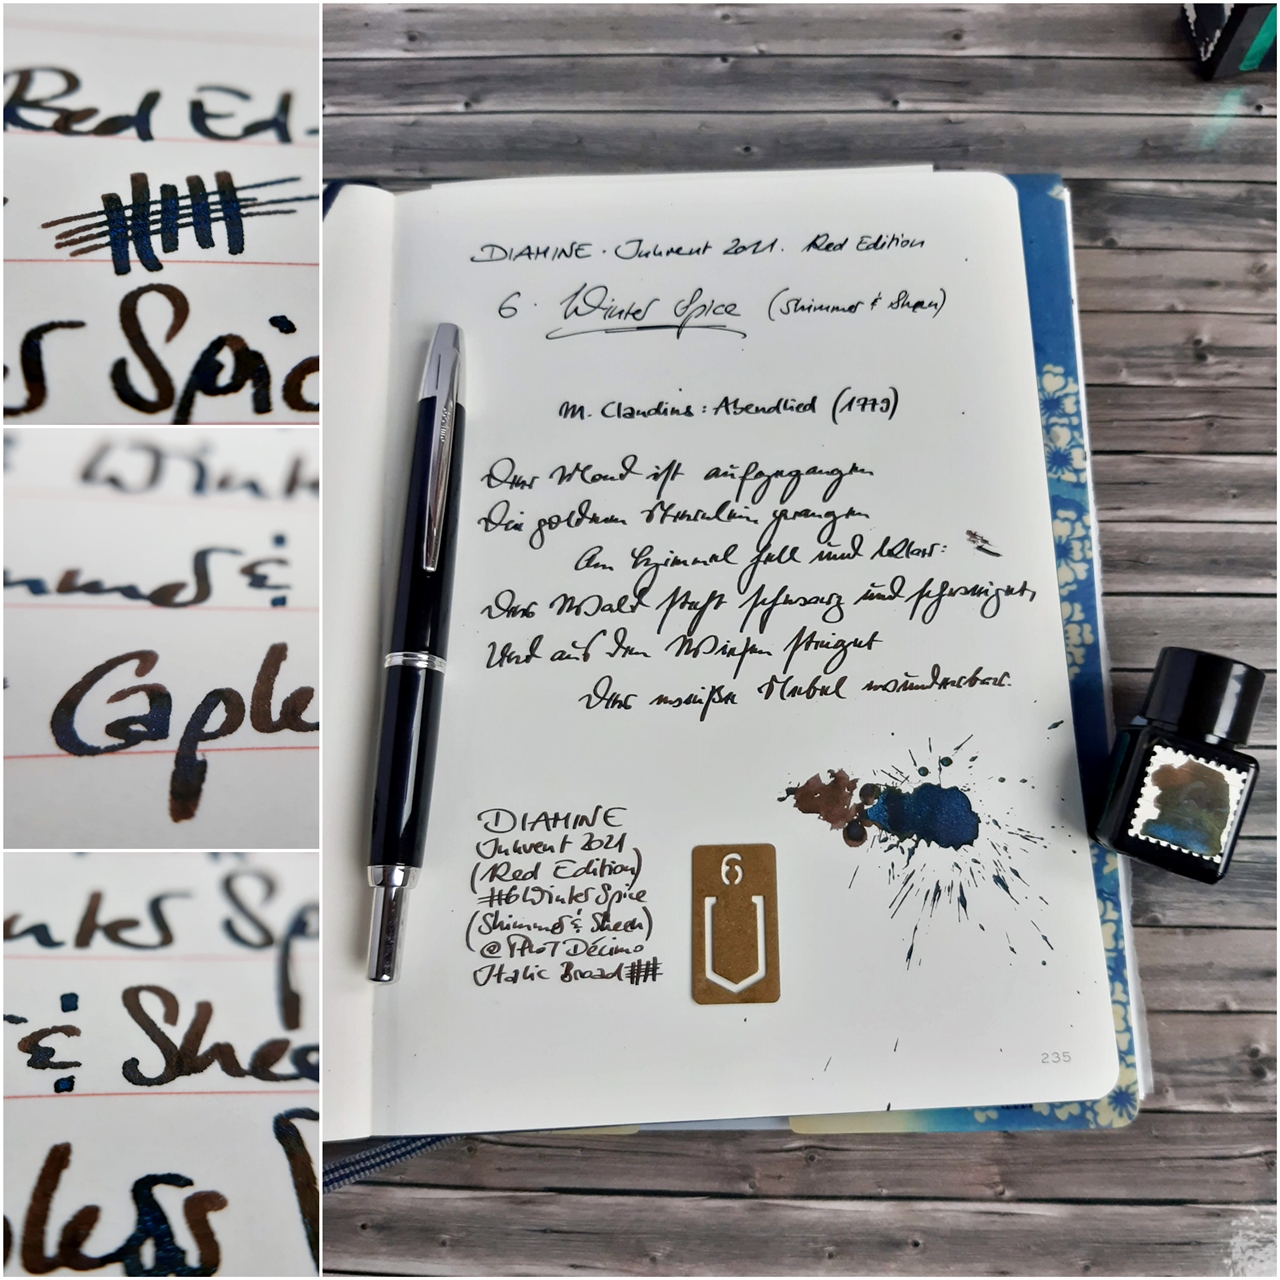 Red Ed-
s Spic
Winte
mmer &
Caple
nter Sp
& Shee
less
DIAMINE · Inkvent 2021. Red Edition
6. Winter Spice (Shimmer & Sheen)
M. Claudius: Abendlied (1779)
Der Mond ist aufgegangen
Die goldnen Sternlein prangen
Am Himmel hell und klar:
Der Wald steht schwarz und schweiget,
Und aus den Wiesen steiget
Der weiße Nebel wunderbar.
DIAMINE
Inkvent 2021
(Red Edition)
#6 Winter Spice
(Shimmer & Sheen)
@ Pilot Décimo
Italic Broad
6
235